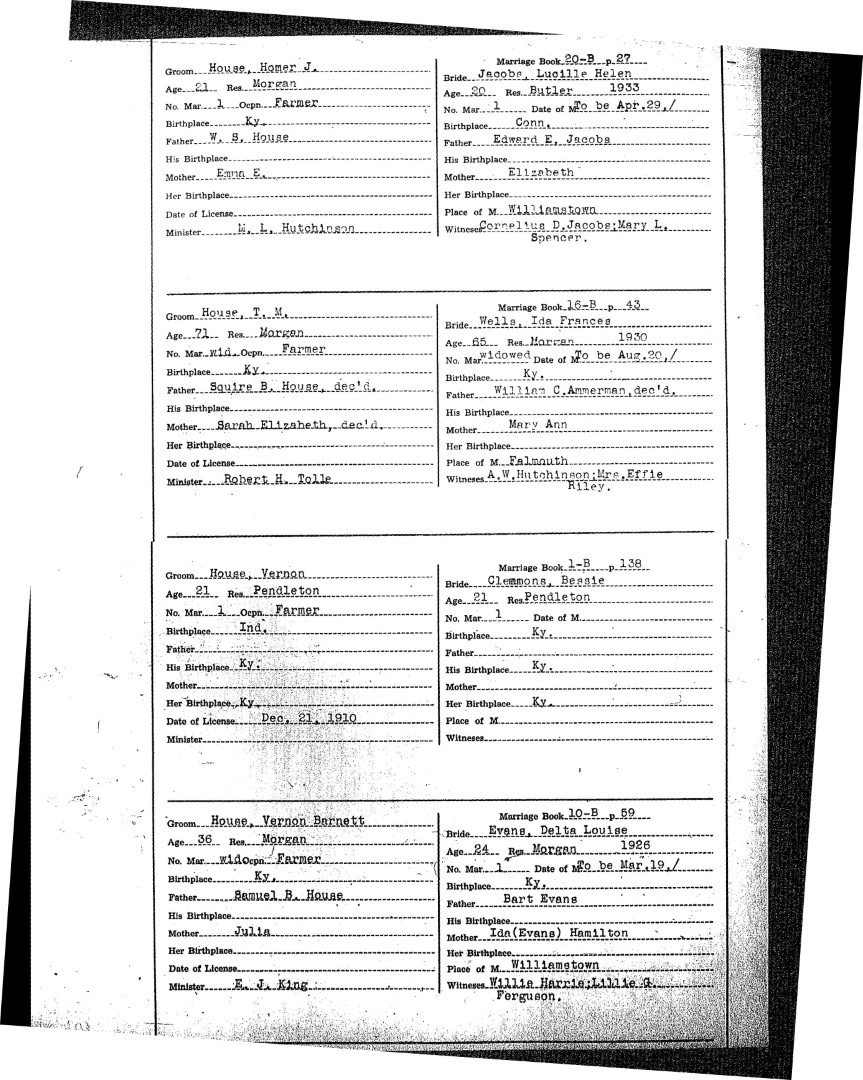 Groom House, Homer J.
Age 21 Res. Morgan
No. Mar. 1 Ocpn. Farmer
Birthplace Ky.
Father W. S. House
His Birthplace
Mother Emma E.
Her Birthplace
Date of License
Minister M. L. Hutchinson
Marriage Book 20-B p. 27
Bride Jacobs, Lucille Helen
Age 20 Res. Butler 1933
No. Mar. 1 Date of M. To be Apr.29,/
Birthplace Conn.
Father Edward E. Jacobs
His Birthplace
Mother Elizabeth
Her Birthplace
Place of M. Williamstown
Witneses Cornelius D.Jacobs;Mary L.
Spencer.
Groom House, T. M.
Age 71 Res. Morgan
No. Mar. wid. Ocpn. Farmer
Birthplace Ky.
Father Squire B. House, dec'd.
His Birthplace
Mother Sarah Elizabeth, dec'd.
Her Birthplace
Date of License
Minister Robert H. Tolle
Marriage Book 16-B p. 43
Bride Wells, Ida Frances
Age 65 Res. Morgan 1930
No. Mar. widowed Date of M. To be Aug.20,/
Birthplace Ky.
Father William C.Ammerman,dec'd.
His Birthplace
Mother Mary Ann
Her Birthplace
Place of M. Falmouth
Witneses A.W.Hutchinson;Mrs.Effie
Riley.
Groom House, Vernon
Age 21 Res. Pendleton
No. Mar. 1 Ocpn. Farmer
Birthplace Ind.
Father
His Birthplace Ky.
Mother
Her Birthplace Ky.
Date of License Dec. 21, 1910
Minister
Marriage Book 1-B p. 138
Bride Clemmons, Bessie
Age 21 Res. Pendleton
No. Mar. 1 Date of M.
Birthplace Ky.
Father
His Birthplace Ky.
Mother
Her Birthplace Ky.
Place of M.
Witneses
Groom House, Vernon Barnett
Age 36 Res. Morgan
No. Mar. wid Ocpn. Farmer
Birthplace Ky.
Father Samuel B. House
His Birthplace
Mother Julia
Her Birthplace
Date of License
Minister E. J. King
Marriage Book 10-B p. 59
Bride Evans, Delta Louise
Age 24 Res. Morgan 1926
No. Mar. 1 Date of M. To be Mar.19,/
Birthplace Ky.
Father Bart Evans
His Birthplace
Mother Ida(Evans) Hamilton
Her Birthplace
Place of M. Williamstown
Witneses Willie Harris;Lillie G.
Ferguson.